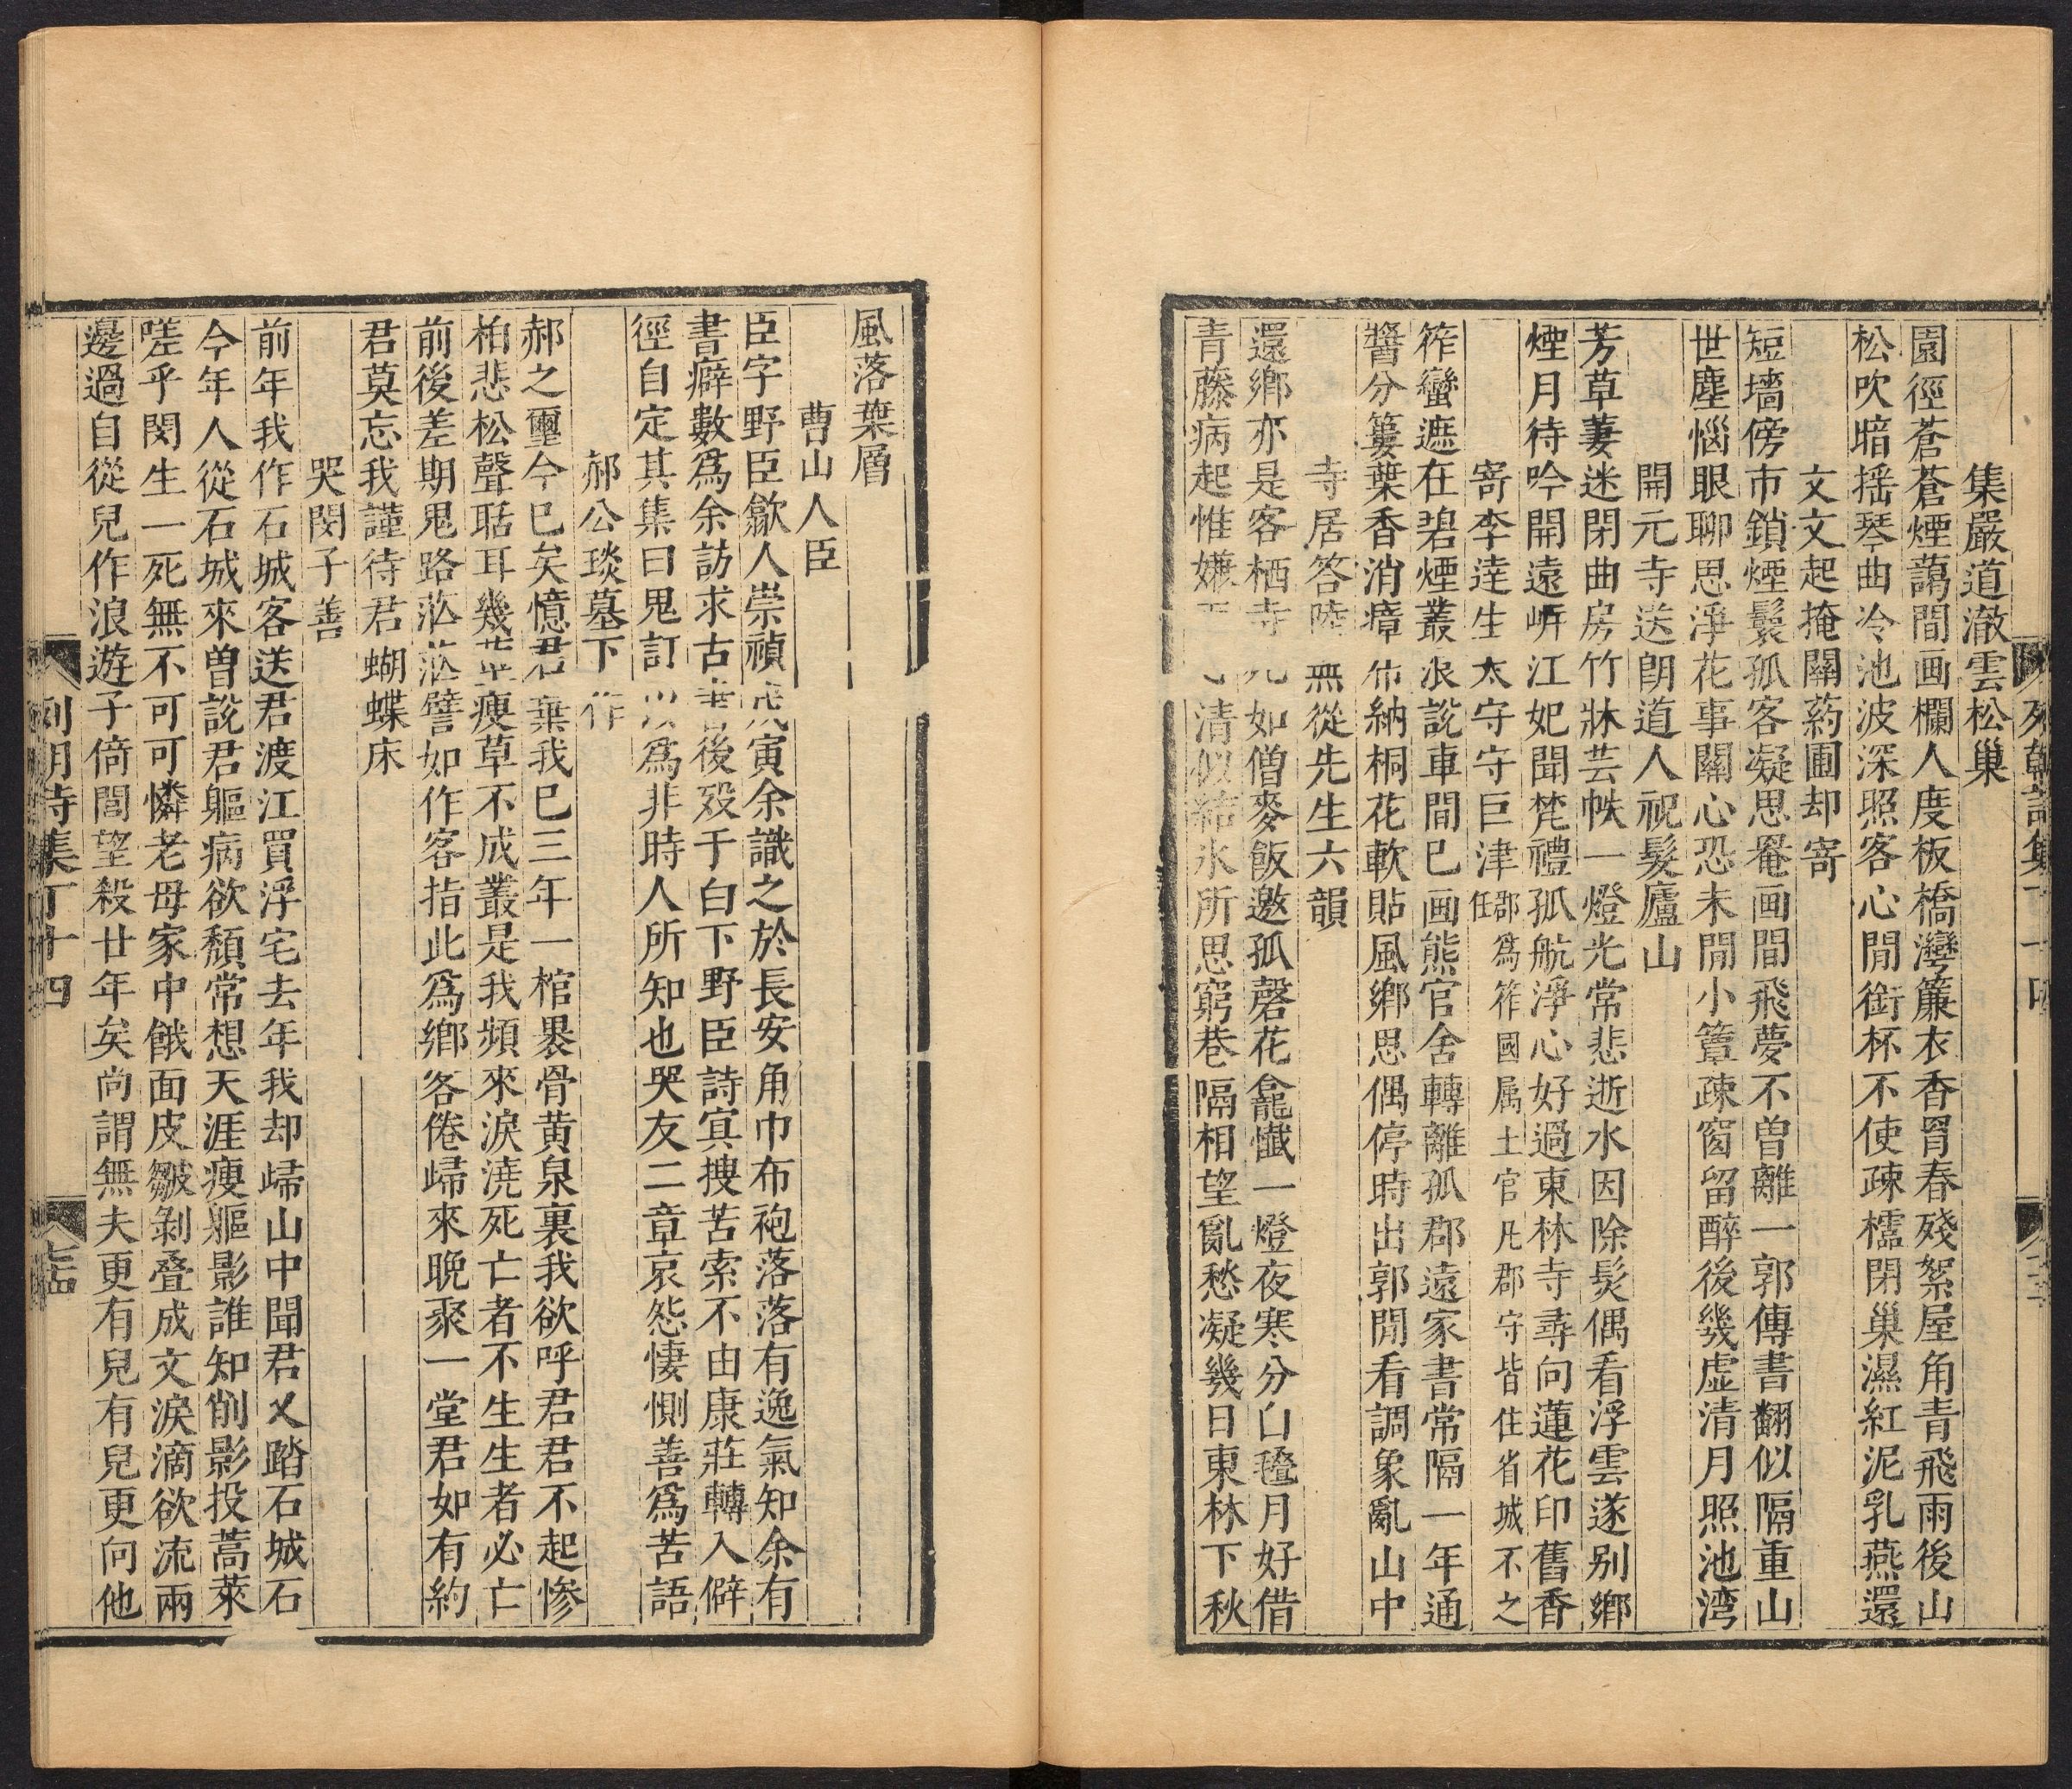 集嚴道澈雲松巢
園徑蒼蒼煙藹間画欄人度板橋灣簾衣香罥春殘絮屋角青飛雨後山
松吹暗揺琴曲冷池波深照客心閒銜杯不使疎櫺閉巢濕紅泥乳燕還
文文起掩關葯圃却寄
短墻傍市鎖煙鬟孤客凝思罨画間飛夢不曽離一郭傳書翻似隔重山
世塵惱眼聊思淨花事關心恐未閒小簟疎窗留醉後幾虚清月照池湾
開元寺送朗道人祝髮廬山
芳草萋迷閉曲房竹牀芸帙一燈光常悲逝水因除髮偶看浮雲遂别鄉
煙月待吟開遠㟁江妃聞梵禮孤航淨心好過東林寺尋向蓮花印舊香
寄李逹生太守守巨津郡為筰國属土官凡郡守皆住省城不之任
筰蠻遮在碧煙叢泿説車間已画熊官舍轉離孤郡遠家書常隔一年通
醬分蔞葉香消瘴布納桐花軟貼風鄉思偶停時出郭閒看調象亂山中
寺居答陸無從先生六韻
還鄉亦是客栖寺如僧麥飯邀孤磬花龕懴一燈夜寒分白㲪月好借
青藤病起惟嫌清似結氷所思窮巷隔相望亂愁凝幾日東林下秋
風落葉層
曹山人臣
臣字野臣歙人崇禎戊寅余識之於長安角巾布袍落落有逸氣知余有
書癖數為余訪求古書後歿于白下野臣詩㝠捜苦索不由康莊轉入僻
徑自定其集曰鬼訂以為非時人所知也哭友二章哀怨悽惻善為苦語
郝公琰墓下作
郝之璽今已矣憶君棄我已三年一棺暴骨黄泉裏我欲呼君君不起惨
柏悲松聲聒耳幾莖瘦草不成叢是我頻來淚澆死亡者不生生者必亡
前後差期鬼路茫茫譬如作客指此為鄉客倦歸來晩聚一堂君如有約
君莫忘我謹待君蝴蝶床
哭閔子善
前年我作石城客送君渡江買浮宅去年我却歸山中聞君又踏石城石
今年人從石城來曽説君軀病欲頽常想天涯痩軀影誰知削影投蒿萊
嗟乎閔生一死無不可可憐老母家中餓面皮皺剝叠成文淚滴欲流兩
邊過自從兒作浪遊子倚閭望殺廿年矣尚謂無夫更有兒有兒更向他
列朝詩集丁十四